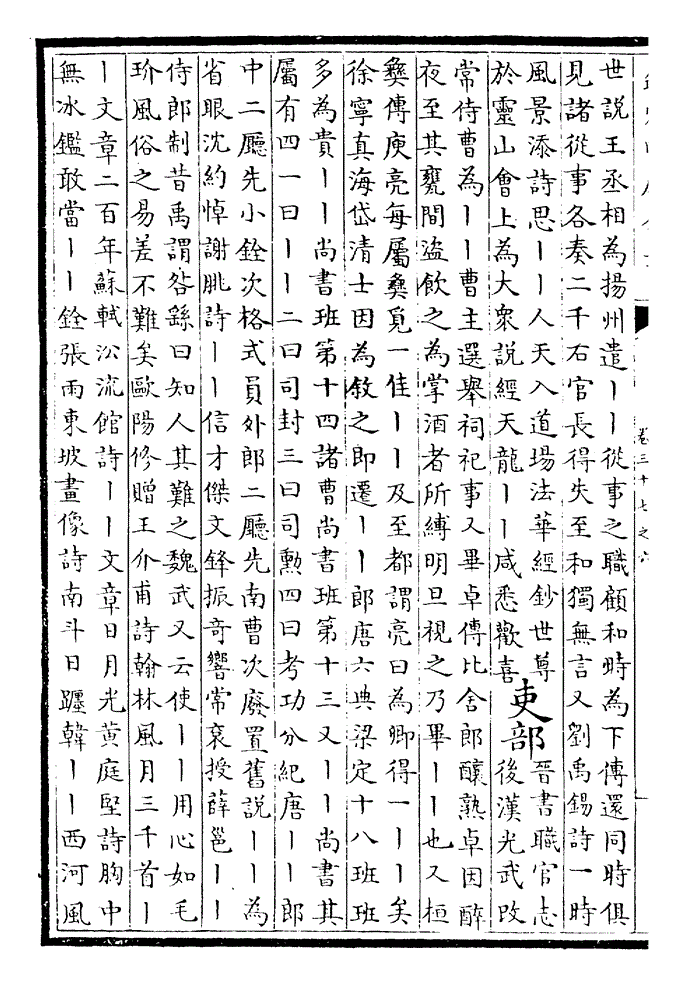 世說王丞相為揚州遣丨丨從事之職顧和時為下傳還同時俱
見諸從事各奏二千石官長得失至和獨無言又劉禹錫詩一時
風景添詩思丨丨人天入道場法華經鈔世尊
於靈山會上為大衆說經天龍丨丨咸悉歡喜
吏部
晉書職官志
後漢光武改
常侍曹為丨丨曹主選舉祠祀事又畢卓傳比舍郎釀熟卓因醉
夜至其甕間盜飲之為掌酒者所縛明旦視之乃畢丨丨也又桓
彝傳庾亮每屬彝覓一佳丨丨及至都謂亮曰為卿得一丨丨矣
徐寧真海岱清士因為敘之即遷丨丨郎唐六典梁定十八班班
多為貴丨丨尚書班第十四諸曹尚書班第十三又丨丨尚書其
屬有四一曰丨丨二曰司封三曰司勲四曰考功分紀唐丨丨郎
中二廳先小銓次格式員外郎二廳先南曹次廢置舊說丨丨為
省眼沈約悼謝朓詩丨丨信才傑文鋒振奇響常袞授薛邕丨丨
侍郎制昔禹謂咎繇曰知人其難之魏武又云使丨丨用心如毛
玠風俗之易差不難矣歐陽修贈王介甫詩翰林風月三千首丨
丨文章二百年蘇軾㳂流館詩丨丨文章日月光黃庭堅詩胸中
無冰鑑敢當丨丨銓張雨東坡畫像詩南斗日躔韓丨丨西河風
卷三十七之六